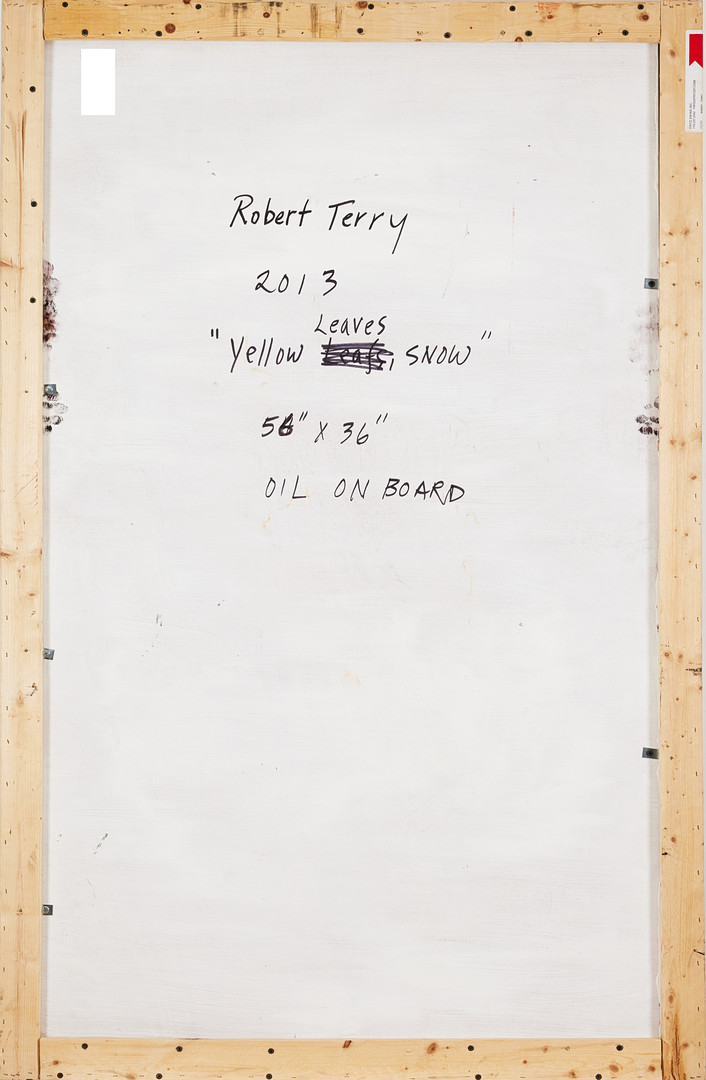 Robert Terry
2013
Leaves
"Yellow Leafs, SNOW"
56" X 36"
OIL ON BOARD